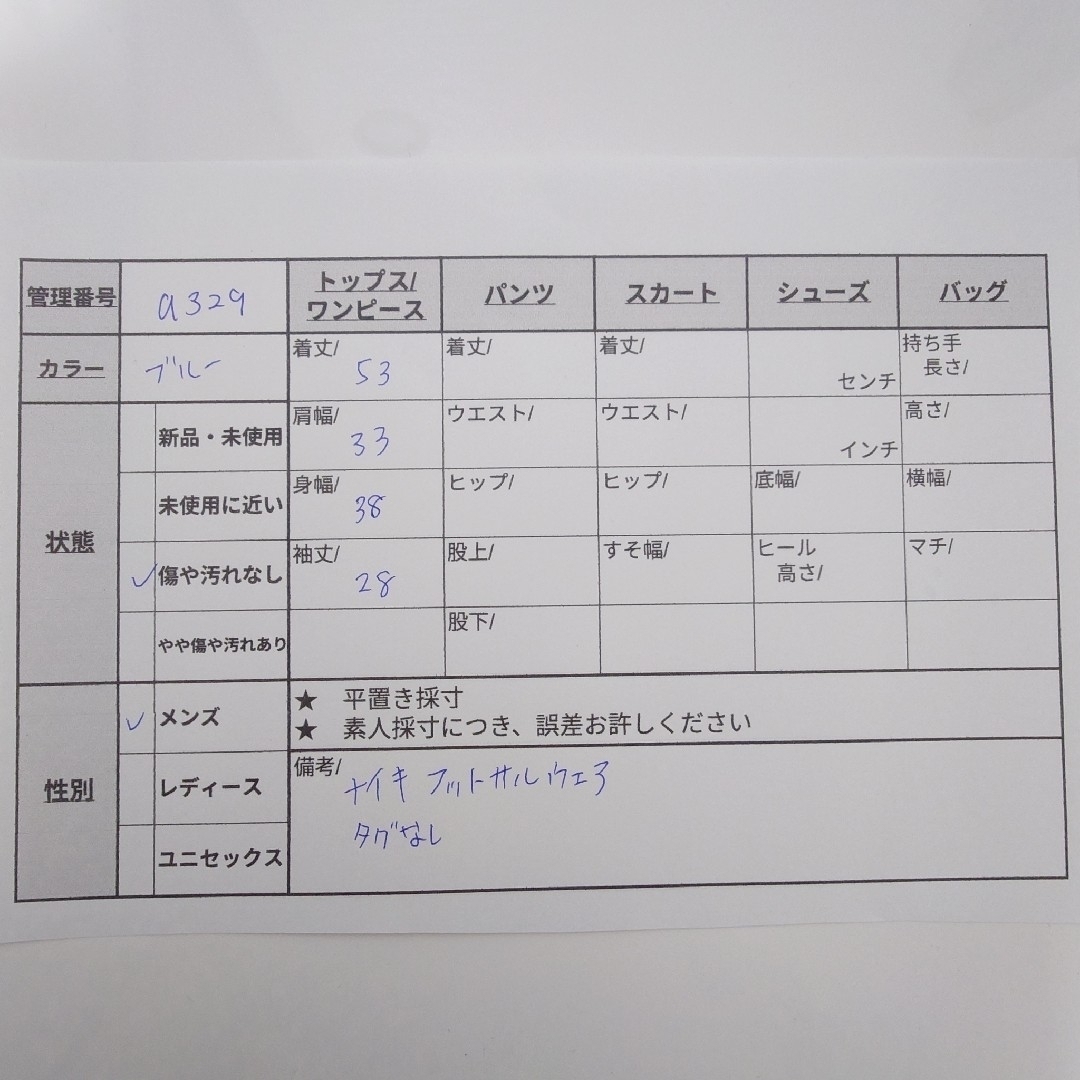 管理番号 a329 トップス/ワンピース パンツ スカート シューズ バッグ
カラー ブルー 着丈/ 53 着丈/ 着丈/ センチ 持ち手長さ/
状態
新品・未使用 肩幅/ 33 ウエスト/ ウエスト/ インチ 高さ/
未使用に近い 身幅/ 38 ヒップ/ ヒップ/ 底幅/ 横幅/
✓ 傷や汚れなし 袖丈/ 28 股上/ すそ幅/ ヒール高さ/ マチ/
やや傷や汚れあり 股下/
性別
✓ メンズ
★ 平置き採寸
★ 素人採寸につき、誤差お許しください
レディース
ユニセックス
備考/ ナイキ フットサルウェア
タグなし